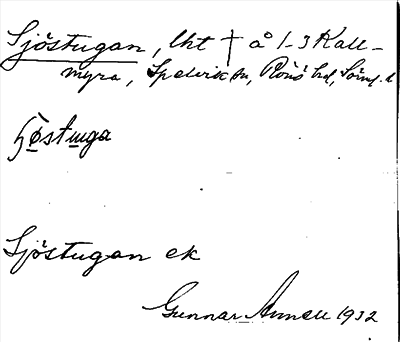 Sjöstugan, lht † å 1-3 Kall-
myra, Spelvik sn, Rönö hd, Söml. l
ɧöstuga
Sjöstugan ek
Gunnar Annell 1932